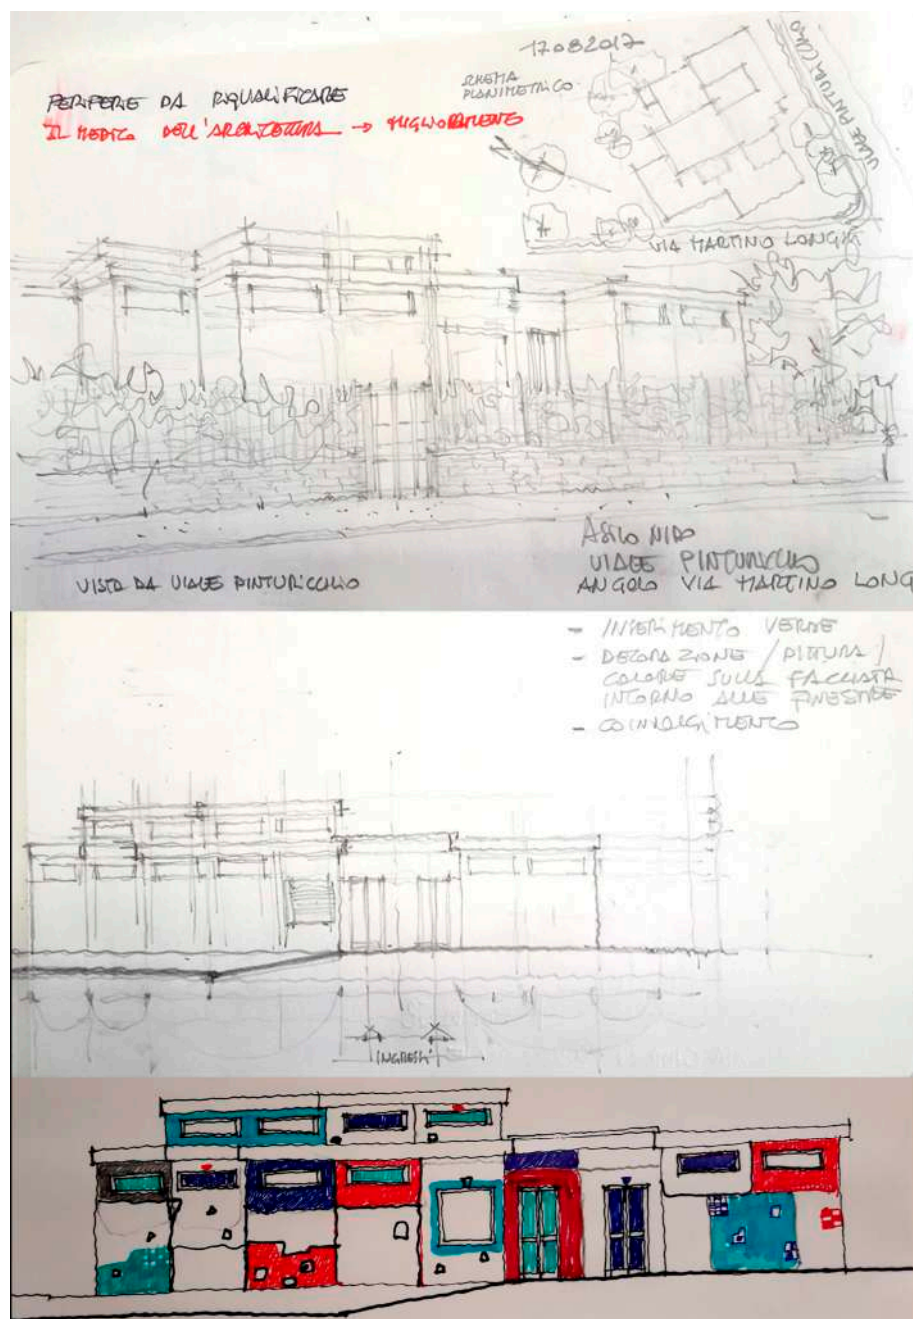 17082017
PERIFERIE DA RIQUALIFICARE
IL MEDICO DELL'ARCHITETTURA → MIGLIORAMENTO
SCHEMA
PLANIMETRICO
N
VIALE PINTURICCHIO
VIA MARTINO LONGHI
ASILO NIDO
VIALE PINTURICCHIO
ANGOLO VIA MARTINO LONG
VISTA DA VIALE PINTURICCHIO
- INSERIMENTO VERDE
- DECORAZIONE / PITTURA /
COLORE SULLA FACCIATA
INTORNO ALLE FINESTRE
- COINVOLGIMENTO
INGRESSI